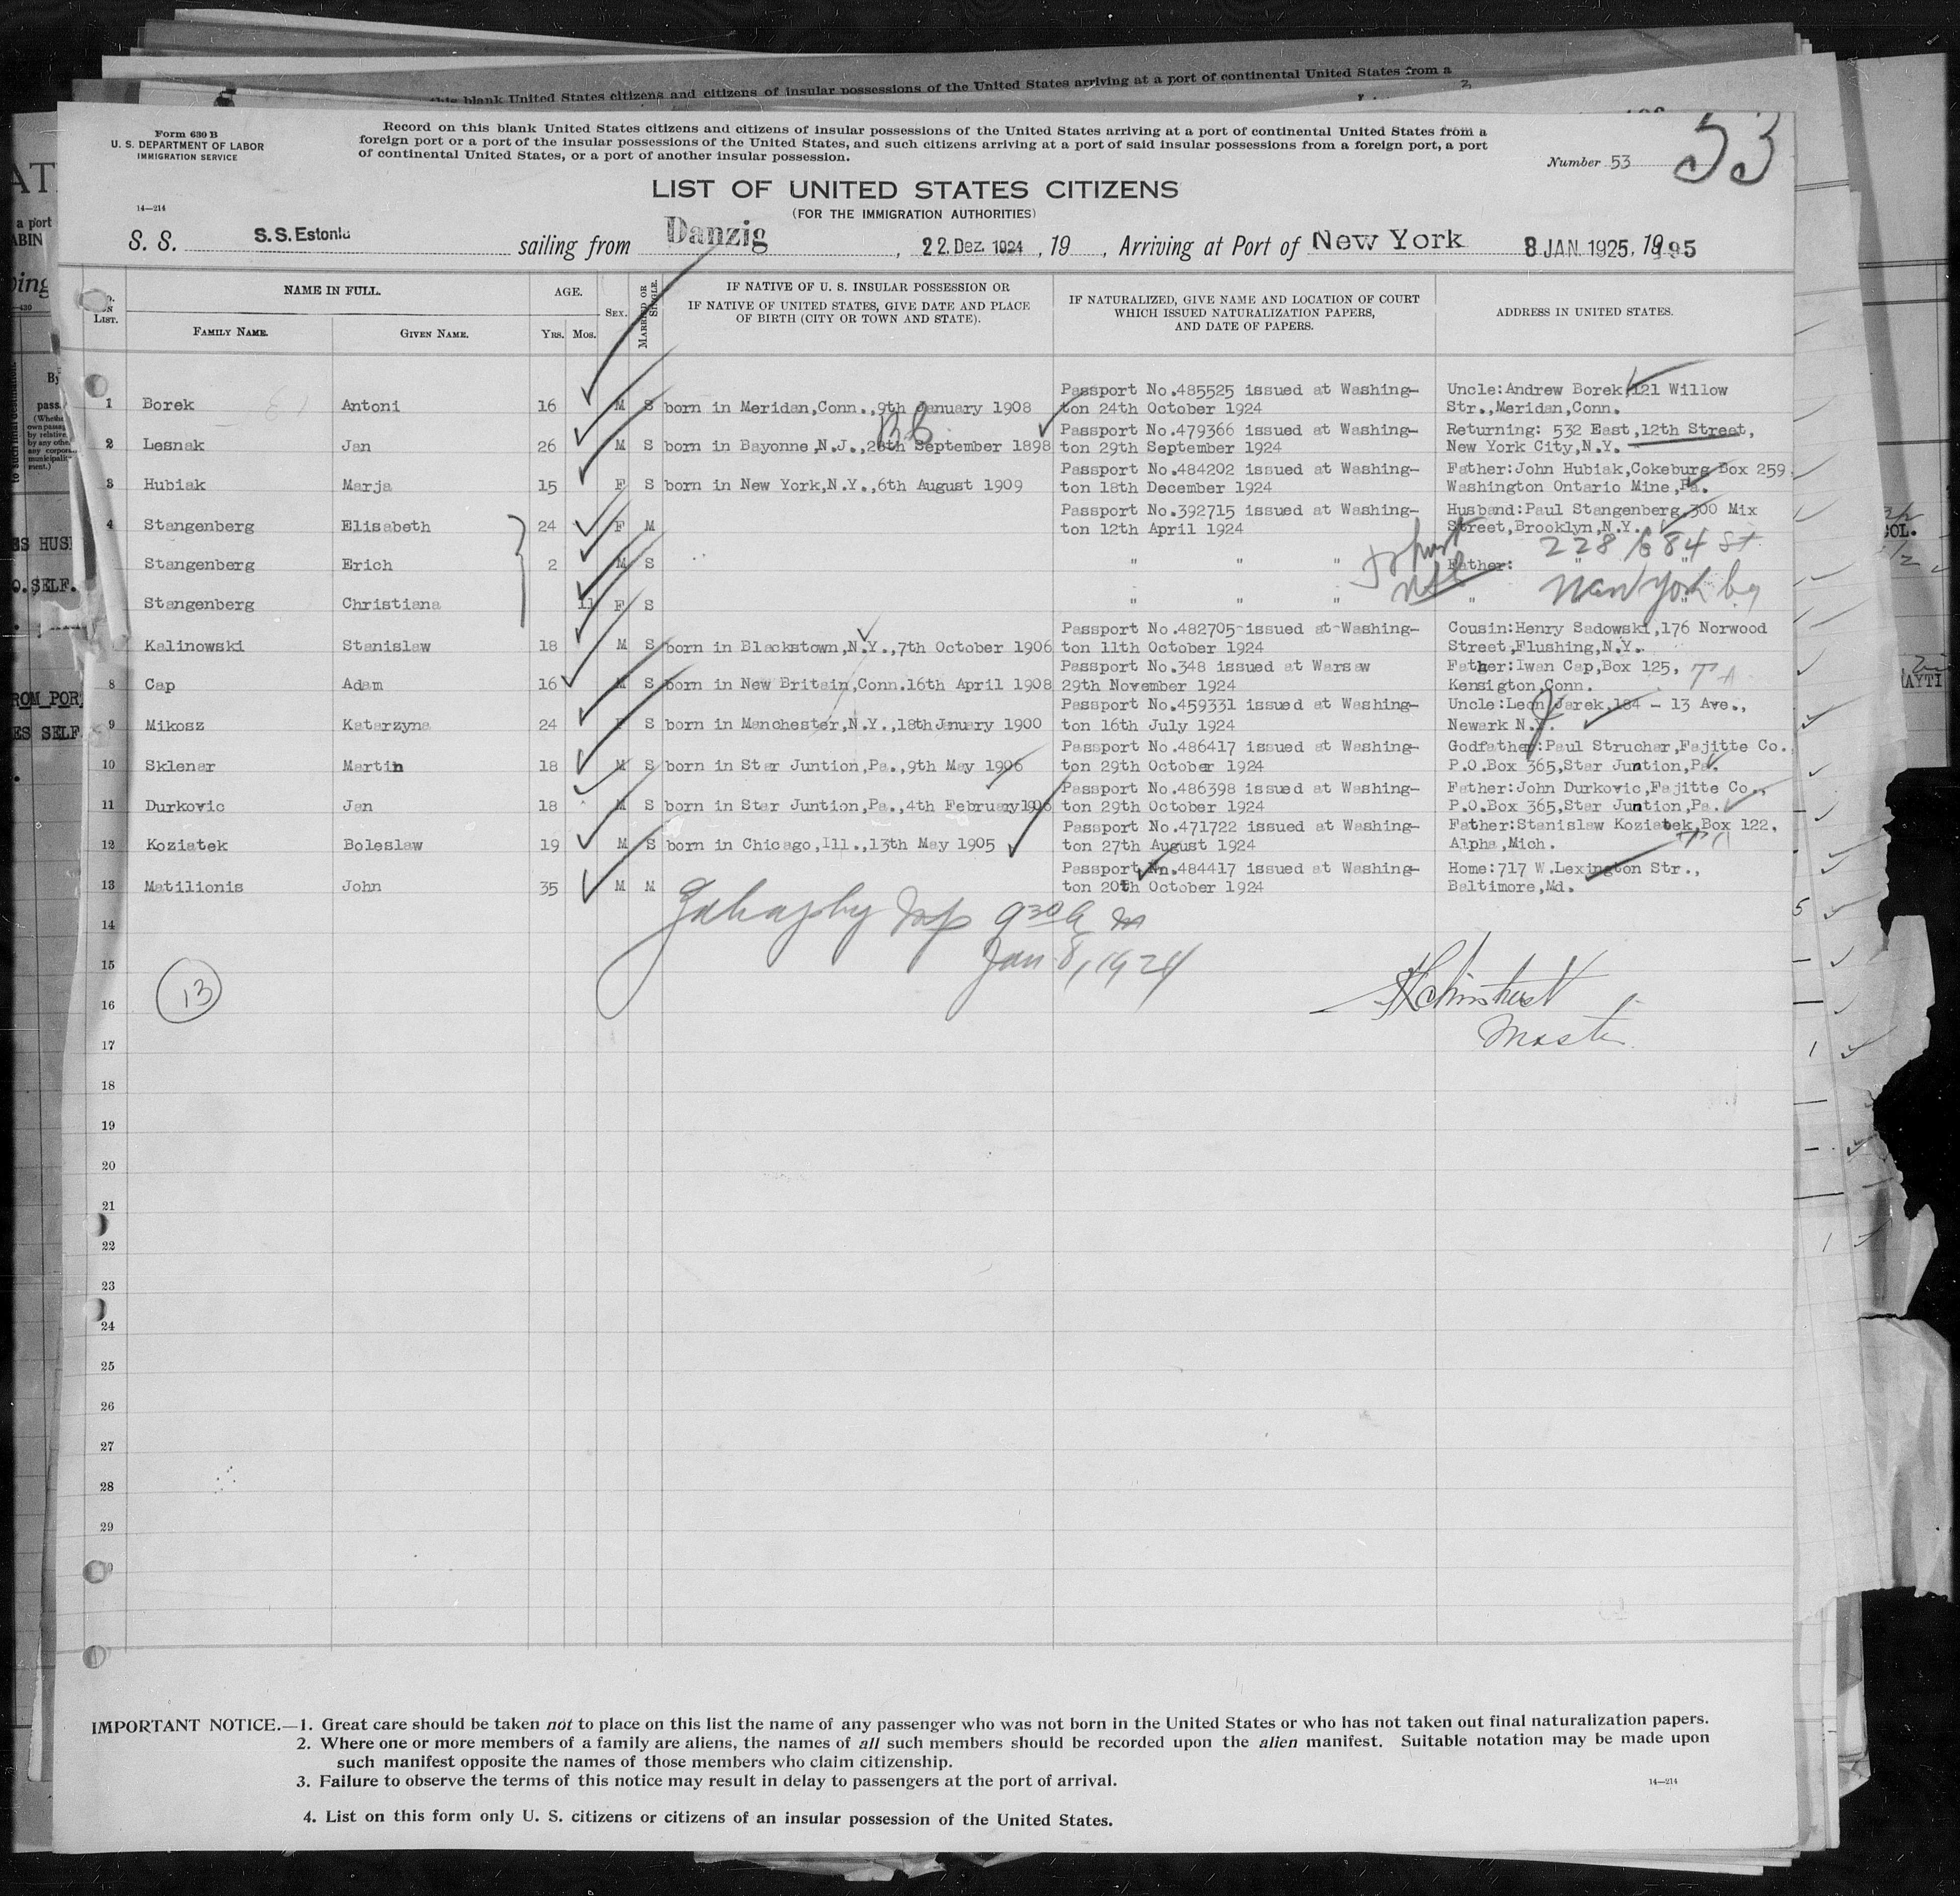 this blank United States citizens and citizens of insular possessions of the United States arriving at a port of continental United States from a
Form 630 B
U. S. DEPARTMENT OF LABOR
IMMIGRATION SERVICE
Record on this blank United States citizens and citizens of insular possessions of the United States arriving at a port of continental United States from a
foreign port or a port of the insular possessions of the United States, and such citizens arriving at a port of said insular possessions from a foreign port, a port
of continental United States, or a port of another insular possession.
Number 53
53
LIST OF UNITED STATES CITIZENS
(FOR THE IMMIGRATION AUTHORITIES)
14—214
S. S. S.S. Estonia sailing from Danzig, 22. Dez. 1924, 19 , Arriving at Port of New York 8 JAN. 1925, 1995
LIST.
NAME IN FULL.
FAMILY NAME. GIVEN NAME.
AGE.
YRS. MOS.
SEX.
MARRIED OR SINGLE.
IF NATIVE OF U. S. INSULAR POSSESSION OR
IF NATIVE OF UNITED STATES, GIVE DATE AND PLACE
OF BIRTH (CITY OR TOWN AND STATE).
IF NATURALIZED, GIVE NAME AND LOCATION OF COURT
WHICH ISSUED NATURALIZATION PAPERS,
AND DATE OF PAPERS.
ADDRESS IN UNITED STATES.
Passport No.485525 issued at Washing- Uncle:Andrew Borek,121 Willow
1 Borek Antoni 16 M S born in Meridan,Conn.,9th January 1908 ton 24th October 1924 Str.,Meridan,Conn.
Passport No.479366 issued at Washing- Returning: 532 East,12th Street,
2 Lesnak Jan 26 M S born in Bayonne,N.J.,28th September 1898 ton 29th September 1924 New York City,N.Y.
Passport No.484202 issued at Washing- Father:John Hubiak,Cokeburg Box 259
3 Hubiak Marja 15 F S born in New York,N.Y.,6th August 1909 ton 18th December 1924 Washington Ontario Mine,Pa.
Passport No.392715 issued at Washing- Husband:Paul Stangenberg,300 Mix
4 Stangenberg Elisabeth 24 F M ton 12th April 1924 Street,Brooklyn,N.Y.
228 84 St
Stangenberg Erich 2 M S " " " Father:
New York
Stangenberg Christiana 11 F S " " " "
Passport No.482705 issued at Washing- Cousin:Henry Sadowski,176 Norwood
Kalinowski Stanislaw 18 M S born in Blackstown,N.Y.,7th October 1906 ton 11th October 1924 Street,Flushing,N.Y.
Passport No.348 issued at Warsaw Father:Iwan Cap,Box 125,
8 Cap Adam 16 M S born in New Britain,Conn.16th April 1908 29th November 1924 Kensigton,Conn.
Passport No.459331 issued at Washing- Uncle:Leon Jarek,184 - 13 Ave.,
9 Mikosz Katarzyna 24 F S born in Manchester,N.Y.,18thJanuary 1900 ton 16th July 1924 Newark N.J.
Passport No.486417 issued at Washing- Godfather:Paul Struchar,Fajitte Co.
10 Sklenar Martin 18 M S born in Star Juntion,Pa.,9th May 1906 ton 29th October 1924 P.O.Box 365,Star Juntion,Pa.
Passport No.486398 issued at Washing- Father:John Durkovic,Fajitte Co.,
11 Durkovic Jan 18 M S born in Star Juntion,Pa.,4th February1906 ton 29th October 1924 P.O.Box 365,Star Juntion,Pa.
Passport No.471722 issued at Washing- Father:Stanislaw Koziatek,Box 122,
12 Koziatek Boleslaw 19 M S born in Chicago,Ill.,13th May 1905 ton 27th August 1924 Alpha,Mich.
Passport No.484417 issued at Washing- Home:717 W.Lexington Str.,
13 Matilionis John 35 M M ton 20th October 1924 Baltimore,Md.
14
Jan 8, 1924
15
13
16
Master
17
18
19
20
21
22
23
24
25
26
27
28
29
IMPORTANT NOTICE.—1. Great care should be taken not to place on this list the name of any passenger who was not born in the United States or who has not taken out final naturalization papers.
2. Where one or more members of a family are aliens, the names of all such members should be recorded upon the alien manifest. Suitable notation may be made upon
such manifest opposite the names of those members who claim citizenship.
3. Failure to observe the terms of this notice may result in delay to passengers at the port of arrival.
14—214
4. List on this form only U. S. citizens or citizens of an insular possession of the United States.